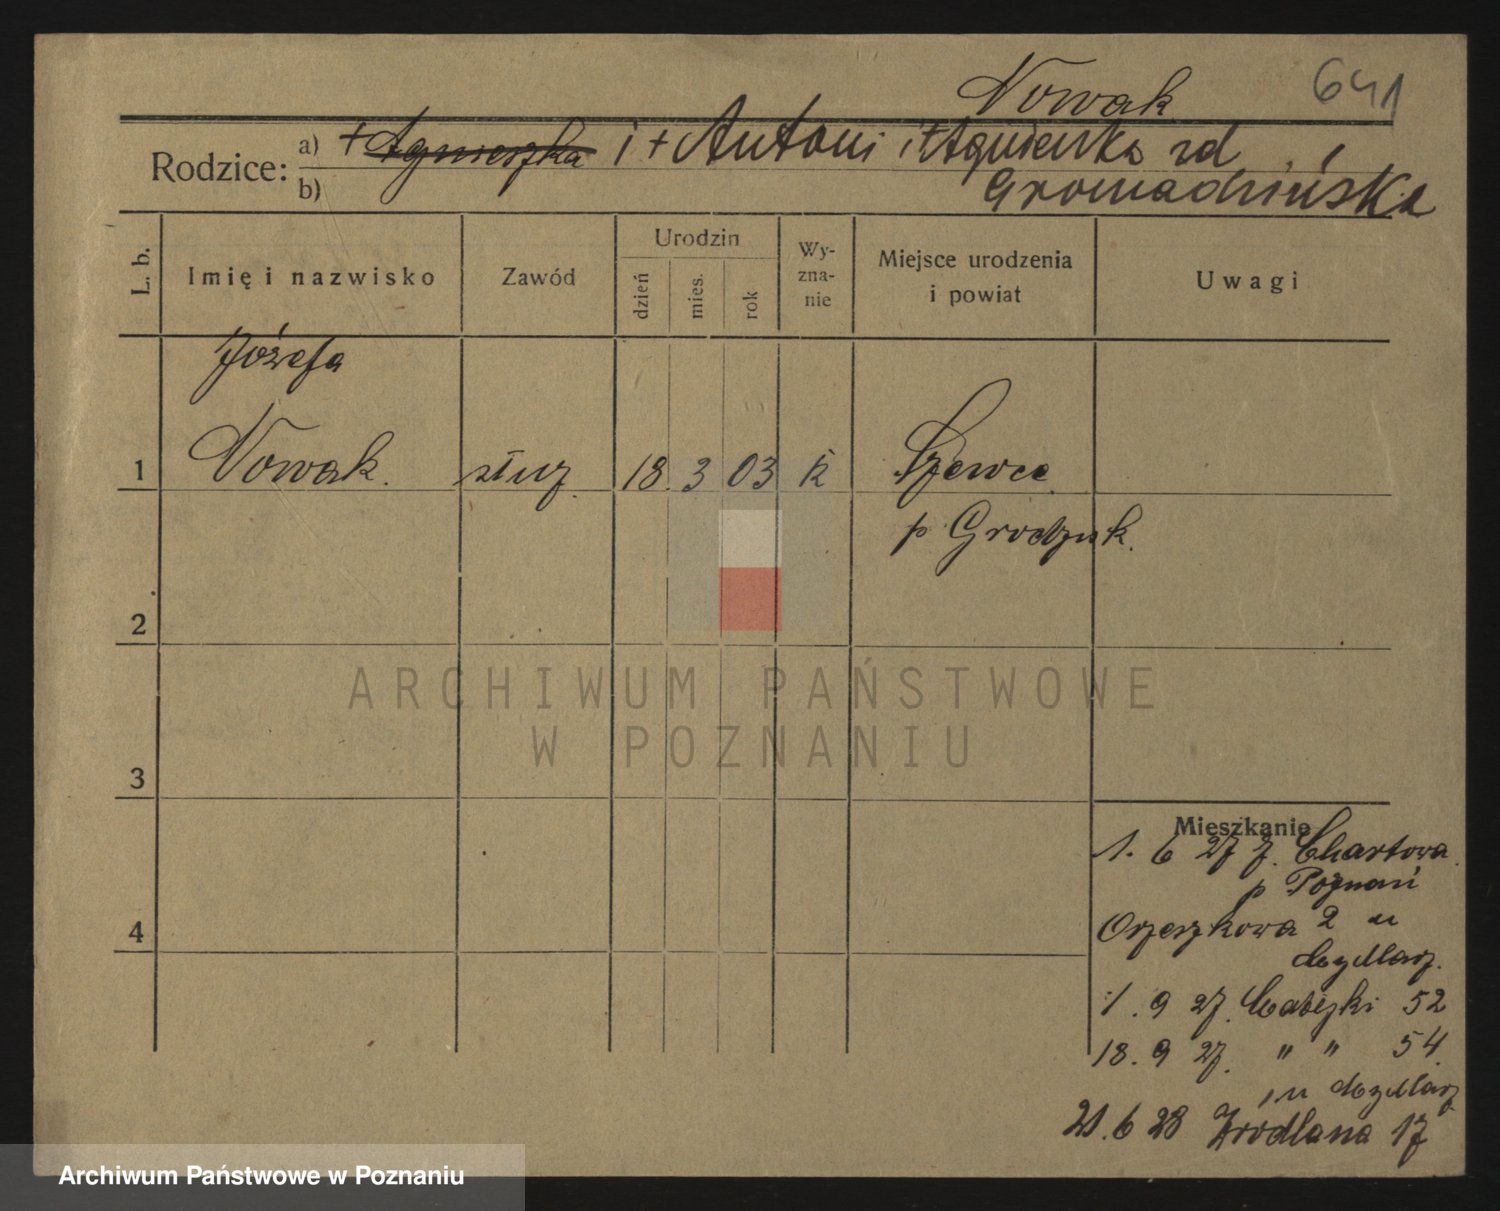 Nowak
641
Rodzice:
a) + Agnieszka i + Antoni i + Agnieszka zd
b) Gromadzińska
L. b.
Imię i nazwisko
Zawód
Urodzin
dzień
mies.
rok
Wy-
zna-
nie
Miejsce urodzenia
i powiat
Uwagi
Józefa
1 Nowak. służ. 18. 3 03 k Szewce
p Grodzisk.
2
ARCHIWUM PAŃSTWOWE
W POZNANIU
3
Mieszkanie
1. 6 27 z. Chartowa
p Poznań
4
Orzeszkowa 2 u
1. 9 27. 52
18. 9 27. " " 54.
21. 6 28 Źrodlana 17
Archiwum Państwowe w Poznaniu